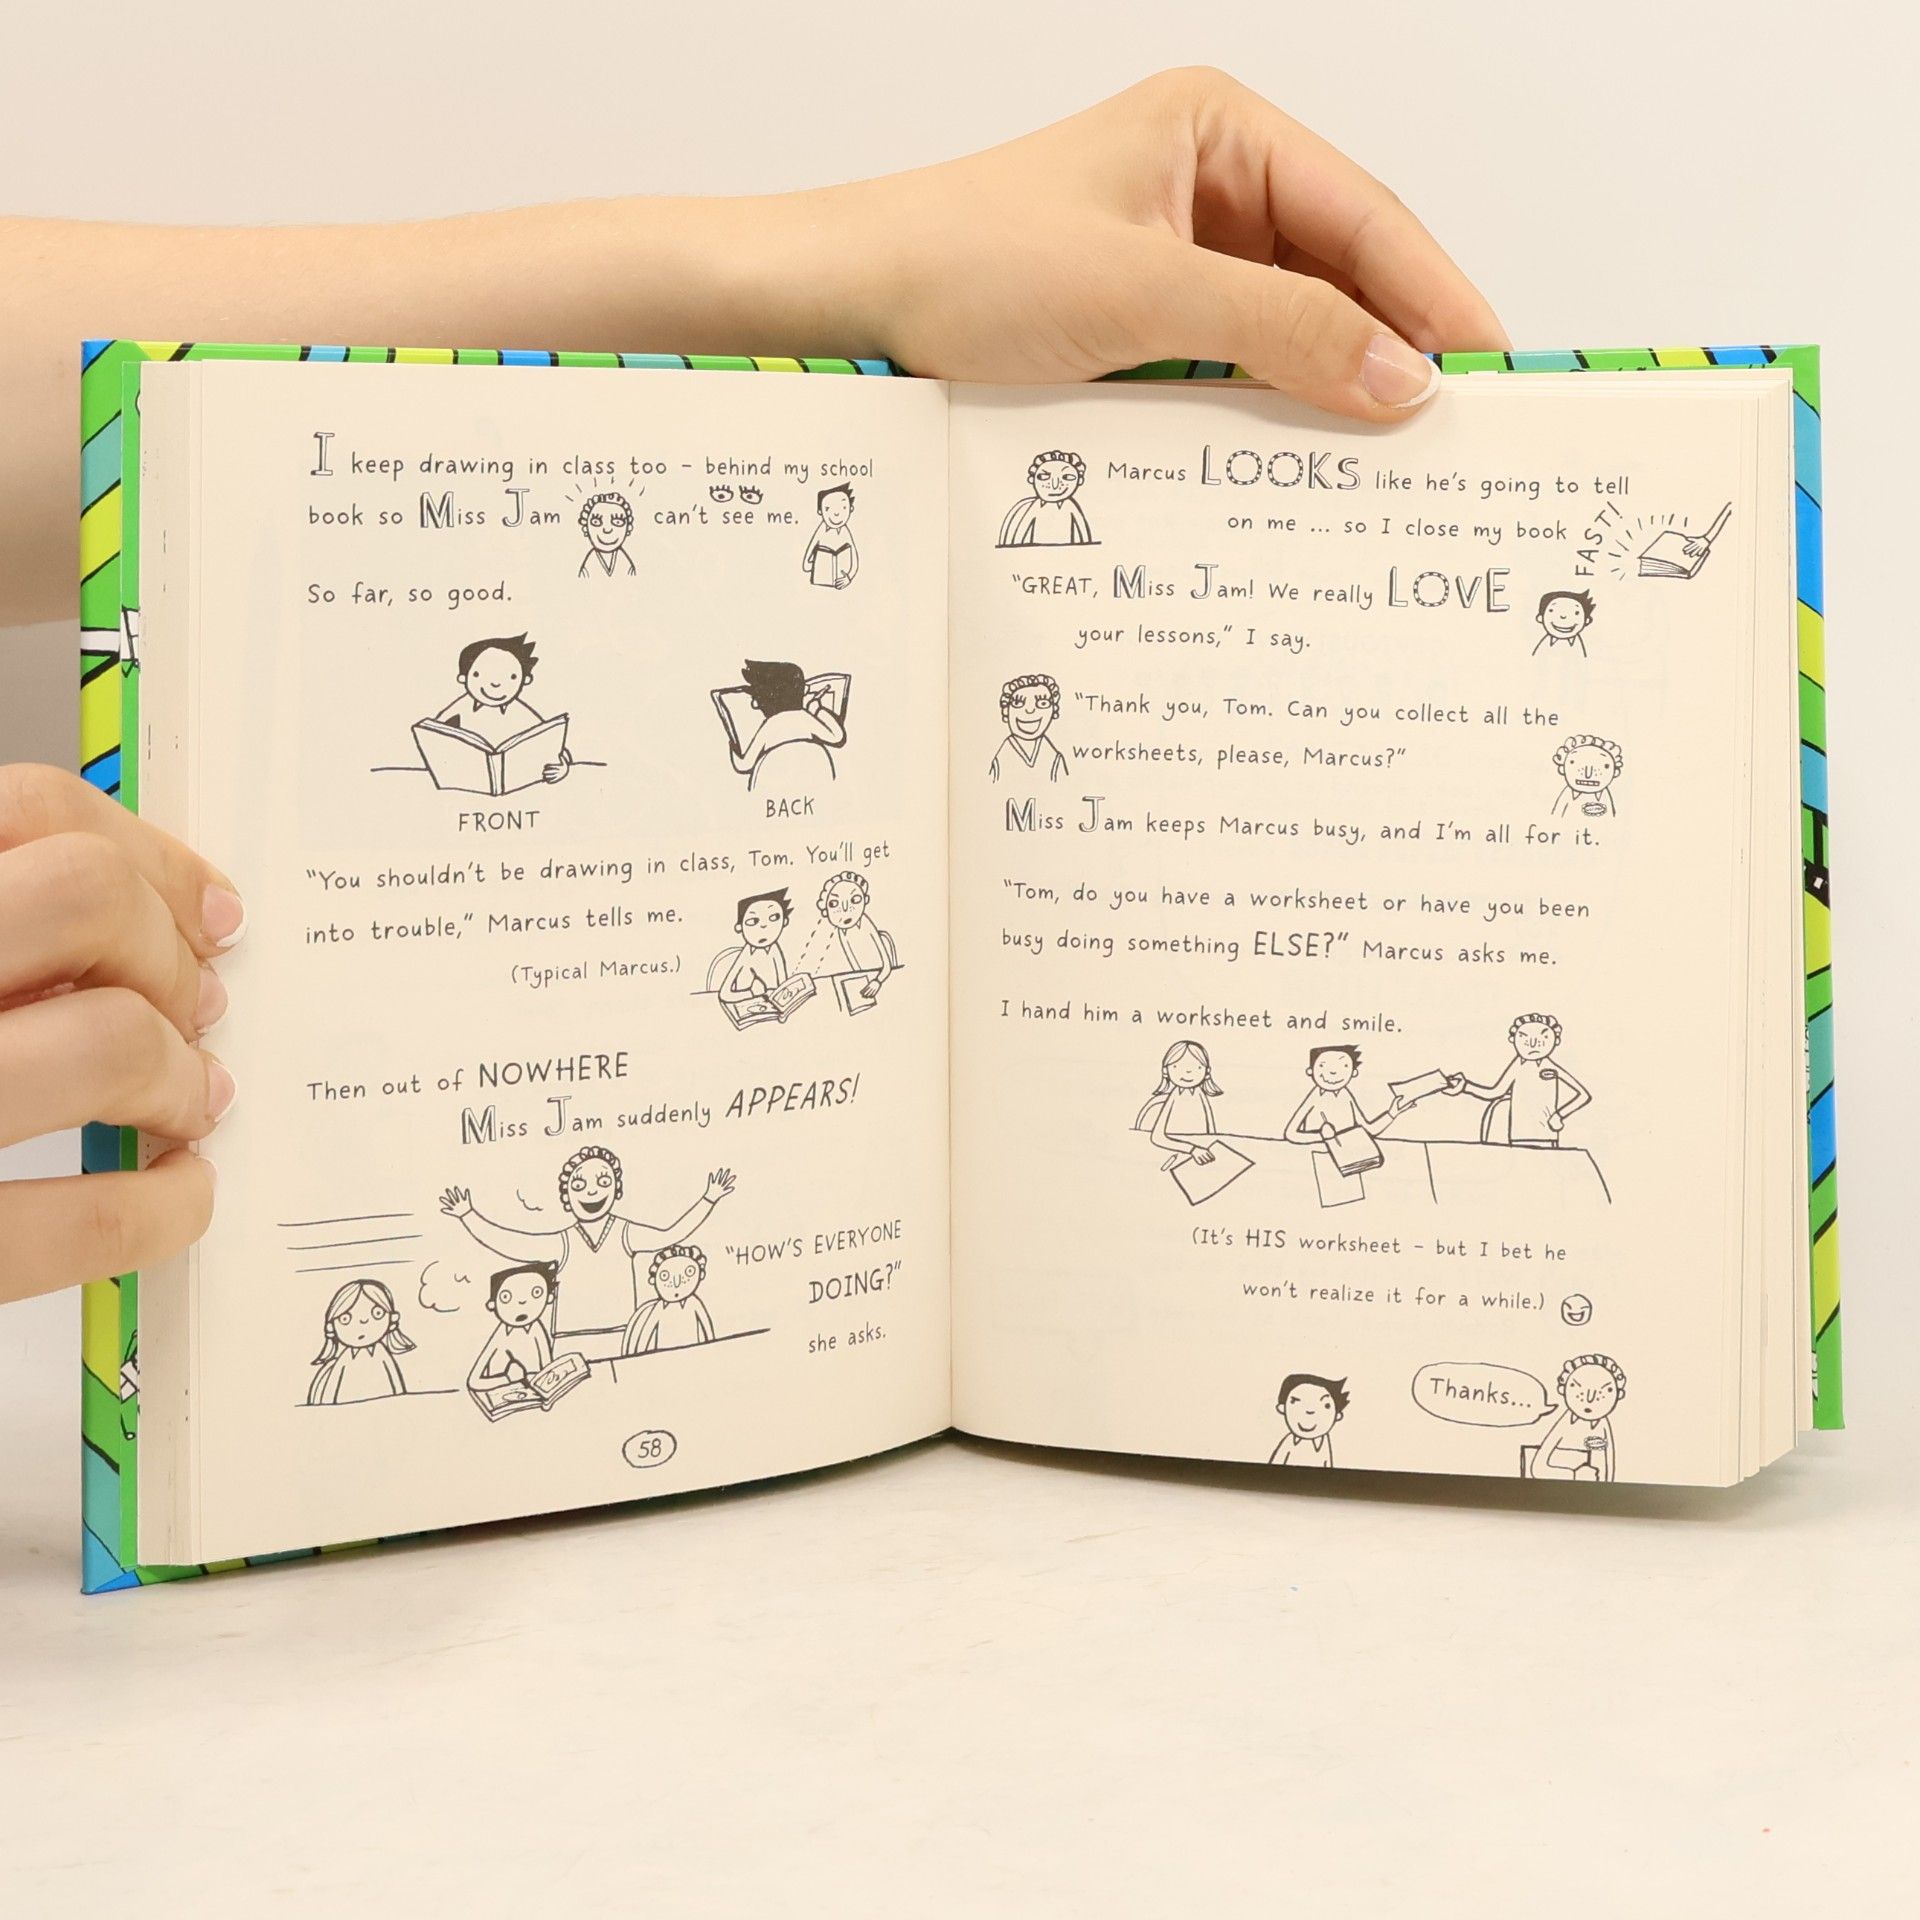 I keep drawing in class too – behind my school
book so Miss Jam can't see me.
So far, so good.
FRONT
BACK
"You shouldn't be drawing in class, Tom. You'll get
into trouble," Marcus tells me.
(Typical Marcus.)
Then out of NOWHERE
Miss Jam suddenly APPEARS!
"HOW'S EVERYONE
DOING?"
she asks.
58
Marcus LOOKS like he's going to tell
on me ... so I close my book FAST!
"GREAT, Miss Jam! We really LOVE
your lessons," I say.
"Thank you, Tom. Can you collect all the
worksheets, please, Marcus?"
Miss Jam keeps Marcus busy, and I'm all for it.
"Tom, do you have a worksheet or have you been
busy doing something ELSE?" Marcus asks me.
I hand him a worksheet and smile.
(It's HIS worksheet – but I bet he
won't realize it for a while.)
Thanks...